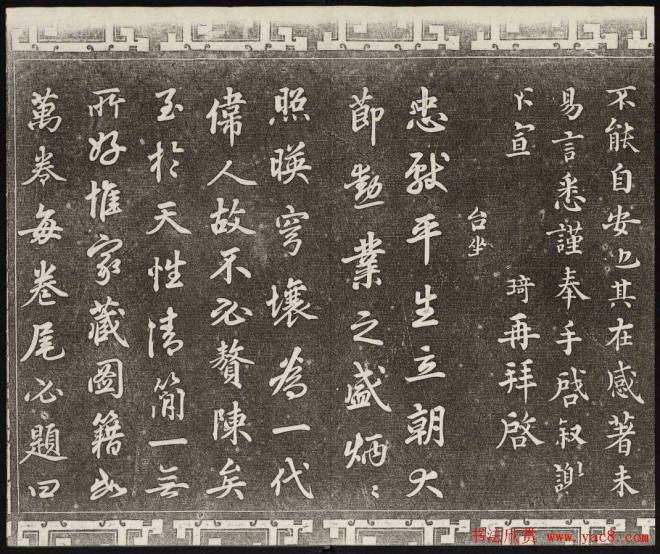 不能自安也其在感著未
易言悉謹奉手啓叙謝
不宣
琦再拜啓
台坐
忠獻平生立朝大
節勳業之盛炳〻
照暎穹壤為一代
偉人故不必贅陳矣
至於天性清簡一無
所好惟家藏圖籍如
萬卷每卷尾必題曰
书法欣赏 www.yac8.com